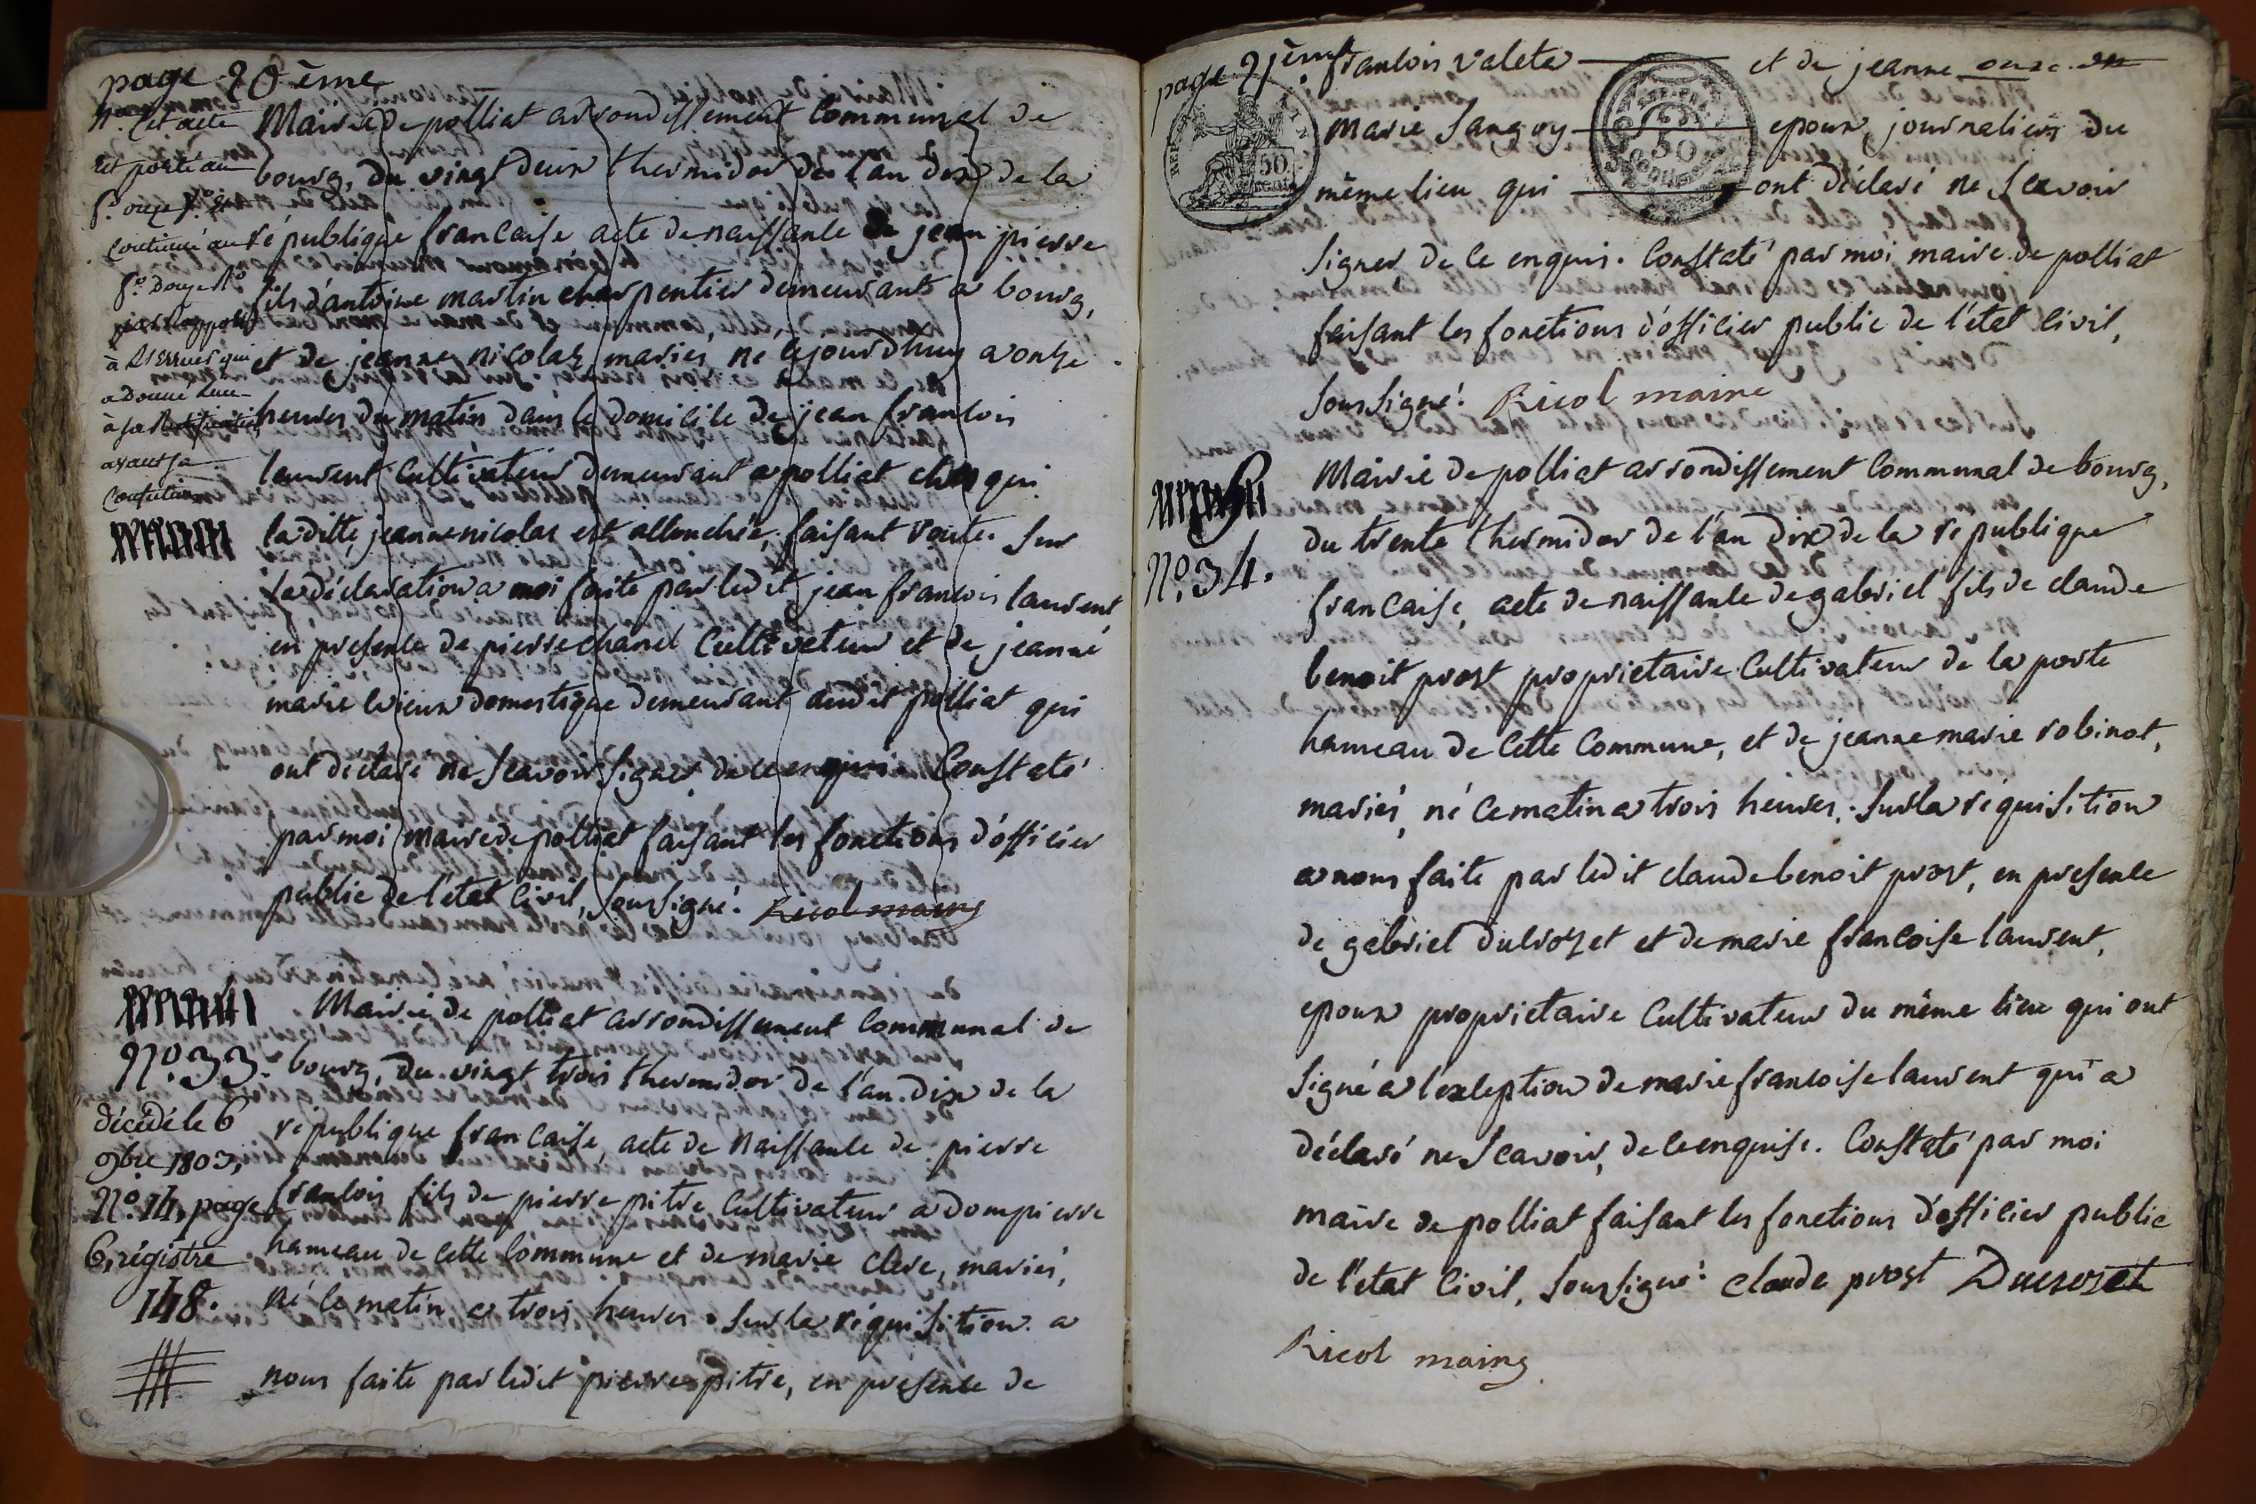 page 20ème
Cet acte
est porté au
f.o onze
continué au
f.o Douze R.o
à l'Erreur qui
a Donné Lieu
à sa Rectification
avant sa
Confection
Mairie de polliat arrondissement Communal de
bourg, du vingt deux thermidor de l'an dix de la
république francaise, acte de naissance de jean pierre
fils d'antoine martin charpentier demeurant a bourg,
et de jeanne nicolas, mariés, né cejourdhuy a onze
heures du matin dans le domicile de jean francois
laurent Cultivateur demeurant a polliat chez qui
la ditte jeanne nicolas est allouchée, faisant route. Sur
la déclaration a moi faite par ledit jean francois laurent
en presence de pierre chanel Cultivateur et de jeanne
marie demeurant audit polliat qui
ont declaré ne Scavoir signer de ce enquis. Constaté
par moi maire de polliat faisant les fonctions d'officier
public de l'état Civil, Soussigné. Ricol maire
N.o 33.
décédé le 6
9bre 1803,
N.o 14, page
6, régistre
148.
Mairie de polliat arrondissement Communal de
bourg, du vingt trois thermidor de l'an dix de la
république francaise, acte de naissance de pierre
francois fils de pierre pitre Cultivateur a dompierre
hameau de cette Commune et de marie clere, mariés,
né ce matin a trois heures. Sur la réquisition a
nous faite par ledit pierre pitre, en presence de
page 21ème
francois valete et de jeanne
marie Sangoy epoux journaliers du
même lieu qui ont déclaré ne Scavoir
signer de ce enquis. Constaté par moi maire de polliat
faisant les fonctions d'officier public de l'état Civil,
Soussigné. Ricol maire
50
cent
50
N.o 34.
Mairie de polliat arrondissement Communal de bourg,
du trente thermidor de l'an dix de la republique
francaise, acte de naissance de gabriel fils de claude
benoit prost proprietaire Cultivateur de la porte
hameau de Cette Commune, et de jeanne marie robinot,
mariés, né ce matin a trois heures. Sur la requisition
a nous faite par ledit claude benoit prost, en presence
de gabriel ducrozet et de marie francoise laurent,
epoux proprietaire Cultivateur du même lieu qui ont
signé a l'exception de marie francoise laurent qui a
déclaré ne Scavoir, de ce enquise. Constaté par moi
maire de polliat faisant les fonctions d'officier public
de l'état Civil, Soussigné. claude prost Ducrozet
Ricol maire